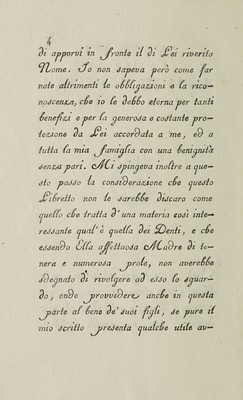 4
di apporvi in fronte il di Lei riverito
Nome. Io non sapeva però come far
note altrimenti le obbligazioni e la rico-
noscenza, che io le debbo eterna per tanti
benefizi e per la generosa e costante pro-
tezione da Lei accordata a me, ed a
tutta la mia famiglia con una benignità
senza pari. Mi spingeva inoltre a que-
sto passo la considerazione che questo
Libretto non le sarebbe discaro come
quello che tratta d'una materia così inte-
ressante qual'è quella dei Denti, e che
essendo Ella affettuosa Madre di te-
nera e numerosa prole, non averebbe
sdegnato di rivolgere ad esso lo sguar-
do, onde provvedere anche in questa
parte al bene de' suoi figli, se pure il
mio scritto presenta qualche utile av-